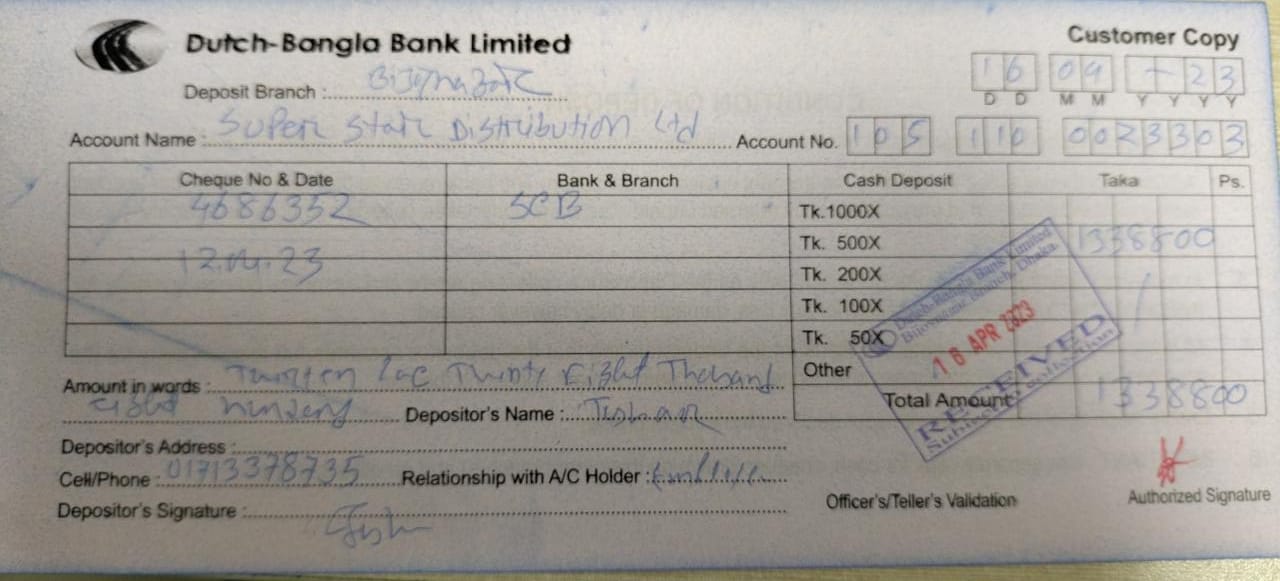 Dutch-Bangla Bank Limited
Customer Copy
Deposit Branch :
16 04 23
D D M M Y Y Y Y
Account Name : Super Star Distribution Ltd Account No. 105 110 0023303
Cheque No & Date Bank & Branch Cash Deposit Taka Ps.
4686352 SCB Tk.1000X
Tk. 500X 1338800
12.04.23 Tk. 200X
Tk. 100X
Tk. 50X
Dutch-Bangla Bank Limited
Bijoynagar Branch, Dhaka.
16 APR 2023
RECEIVED
Subject to Collection
Other
Total Amount 1338800
Amount in words : Thirteen Lac Thirty Eight Thousand
Eight Hundred Depositor's Name :
Depositor's Address :
Cell/Phone : 01713378735 Relationship with A/C Holder :
Depositor's Signature :
Officer's/Teller's Validation
Authorized Signature